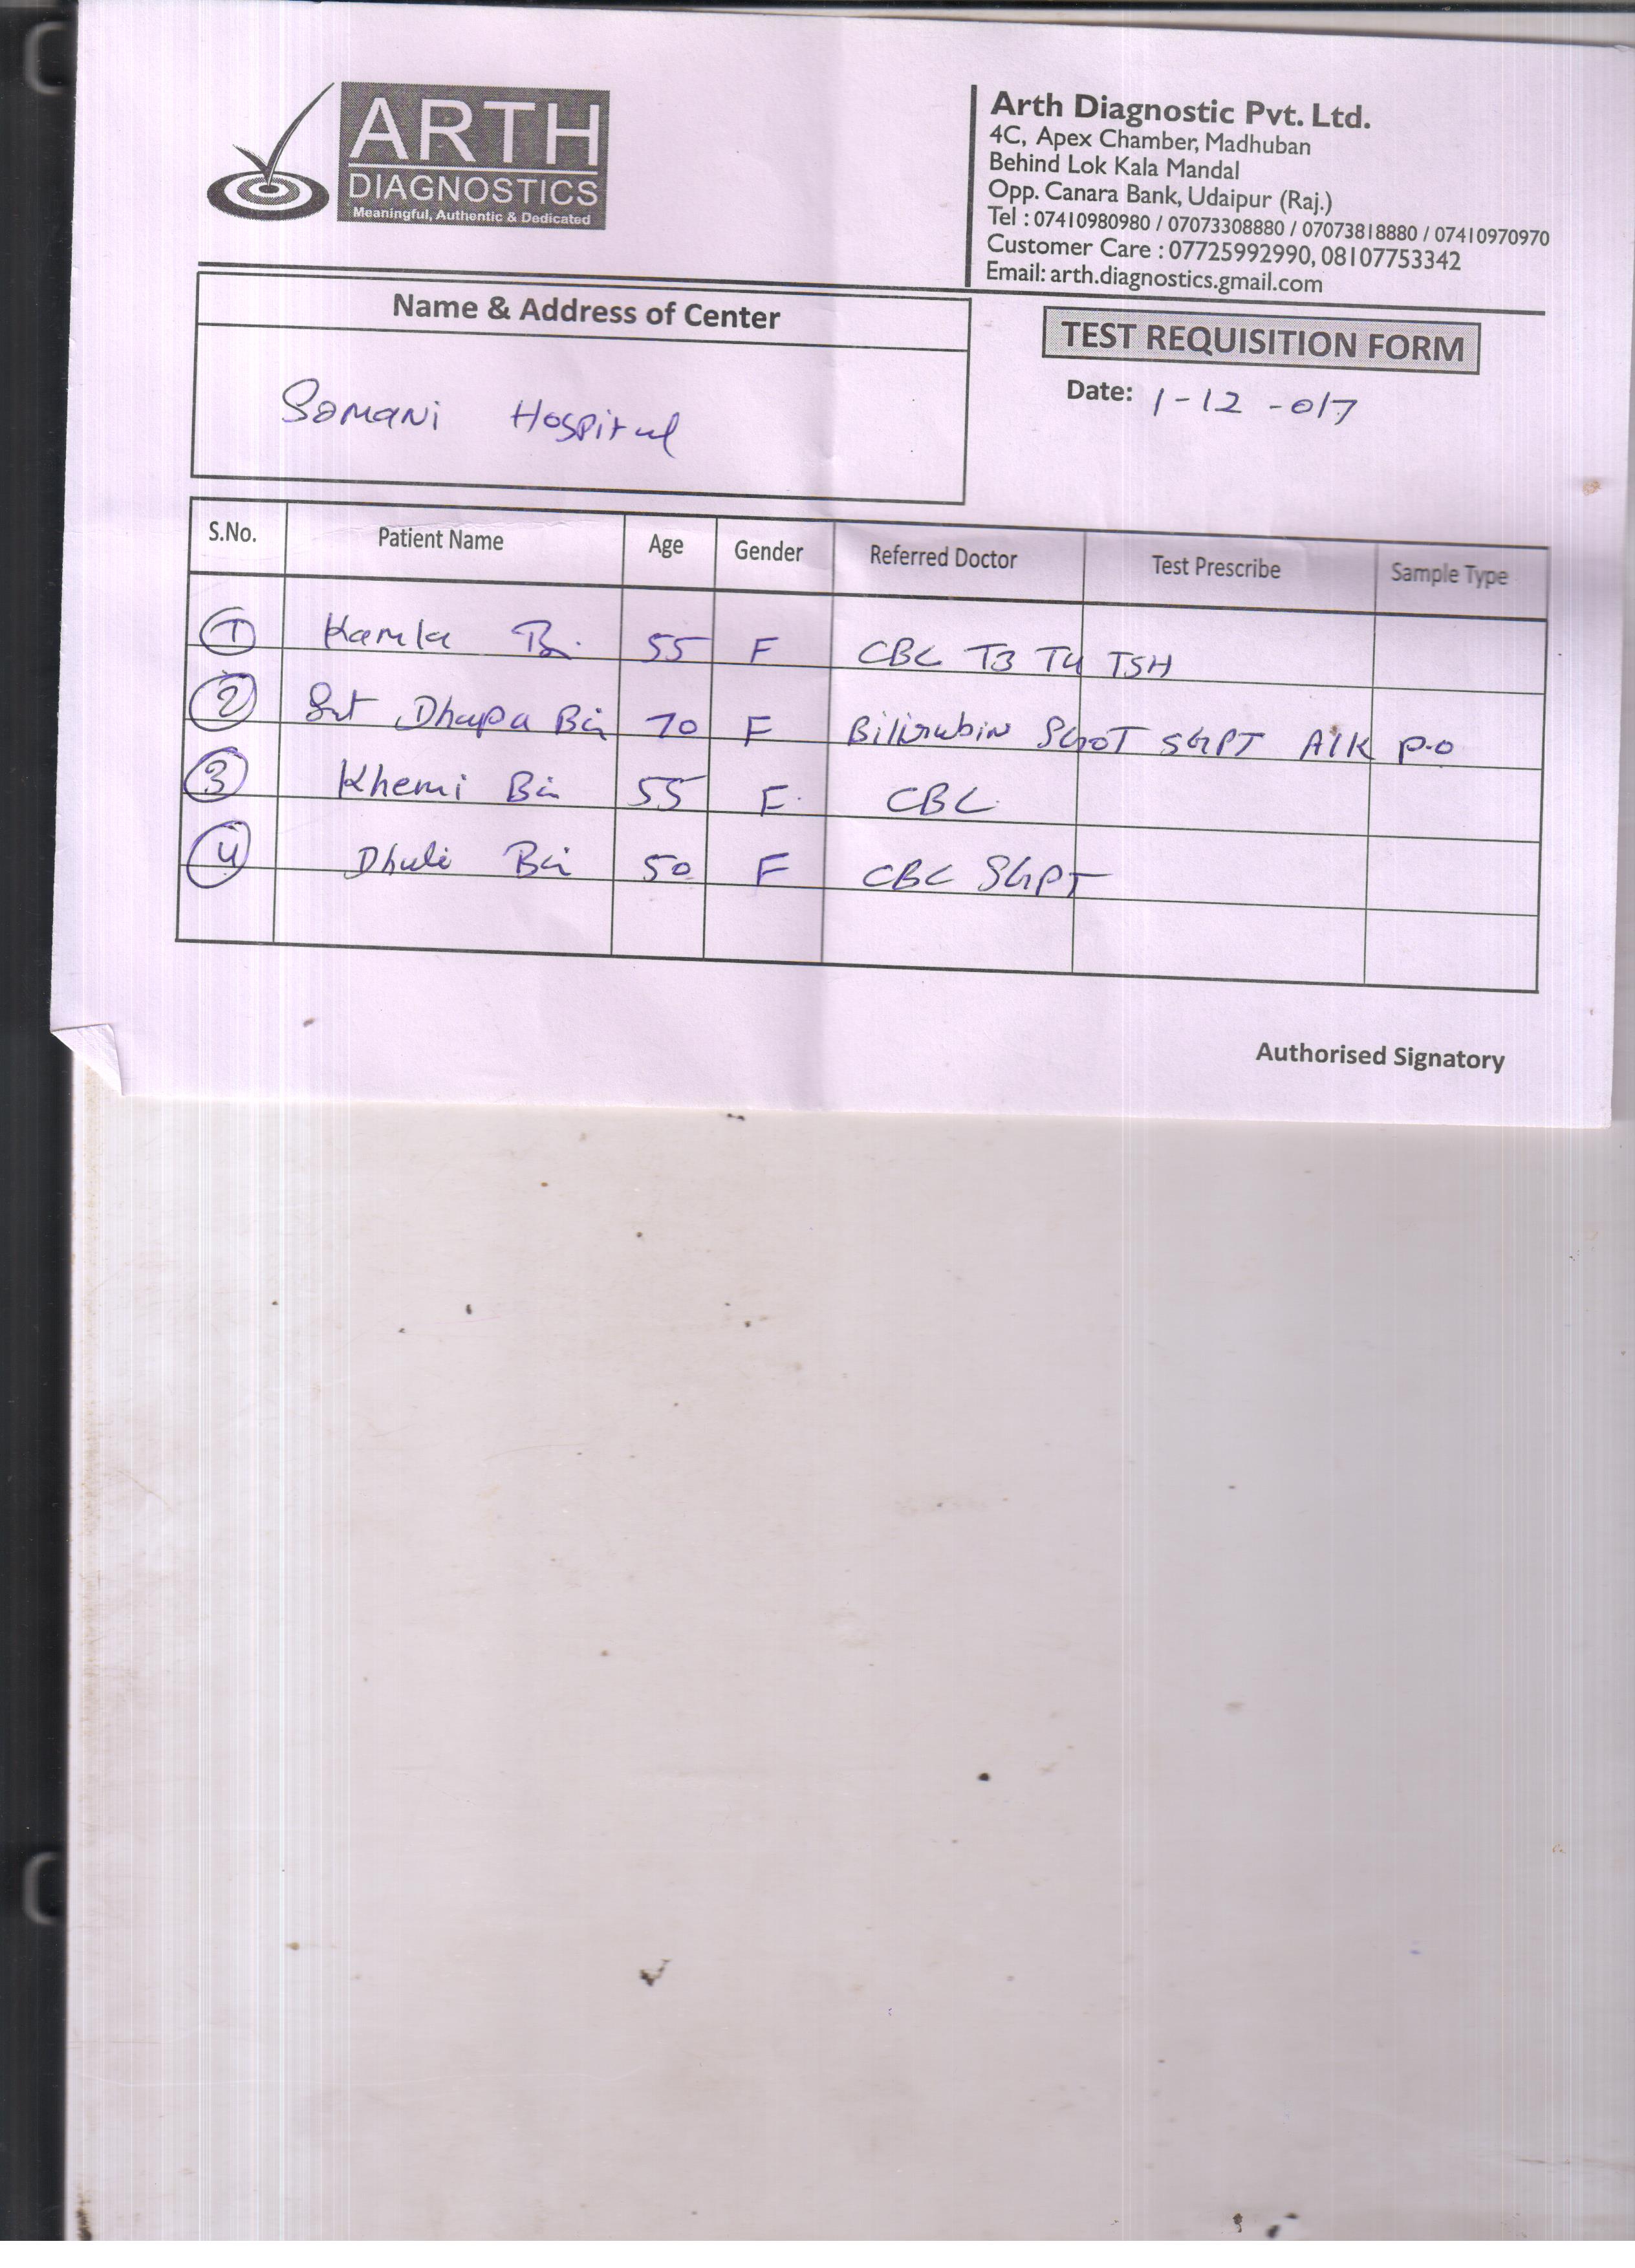 ARTH
DIAGNOSTICS
Meaningful, Authentic & Dedicated
Arth Diagnostic Pvt. Ltd.
4C, Apex Chamber, Madhuban
Behind Lok Kala Mandal
Opp. Canara Bank, Udaipur (Raj.)
Tel : 07410980980 / 07073308880 / 07073818880 / 07410970970
Customer Care : 07725992990, 08107753342
Email: arth.diagnostics.gmail.com
Name & Address of Center
Somani Hospital
TEST REQUISITION FORM
Date: 1-12-017
S.No. Patient Name Age Gender Referred Doctor Test Prescribe Sample Type
1 Kamla 55 F CBC T3 T4 TSH
2 Dhapa Bai 70 F Bilirubin SGOT SGPT Alk P.O
3 Khemi Bai 55 F CBC
4 Dhuli Bai 50 F CBC SGPT
Authorised Signatory